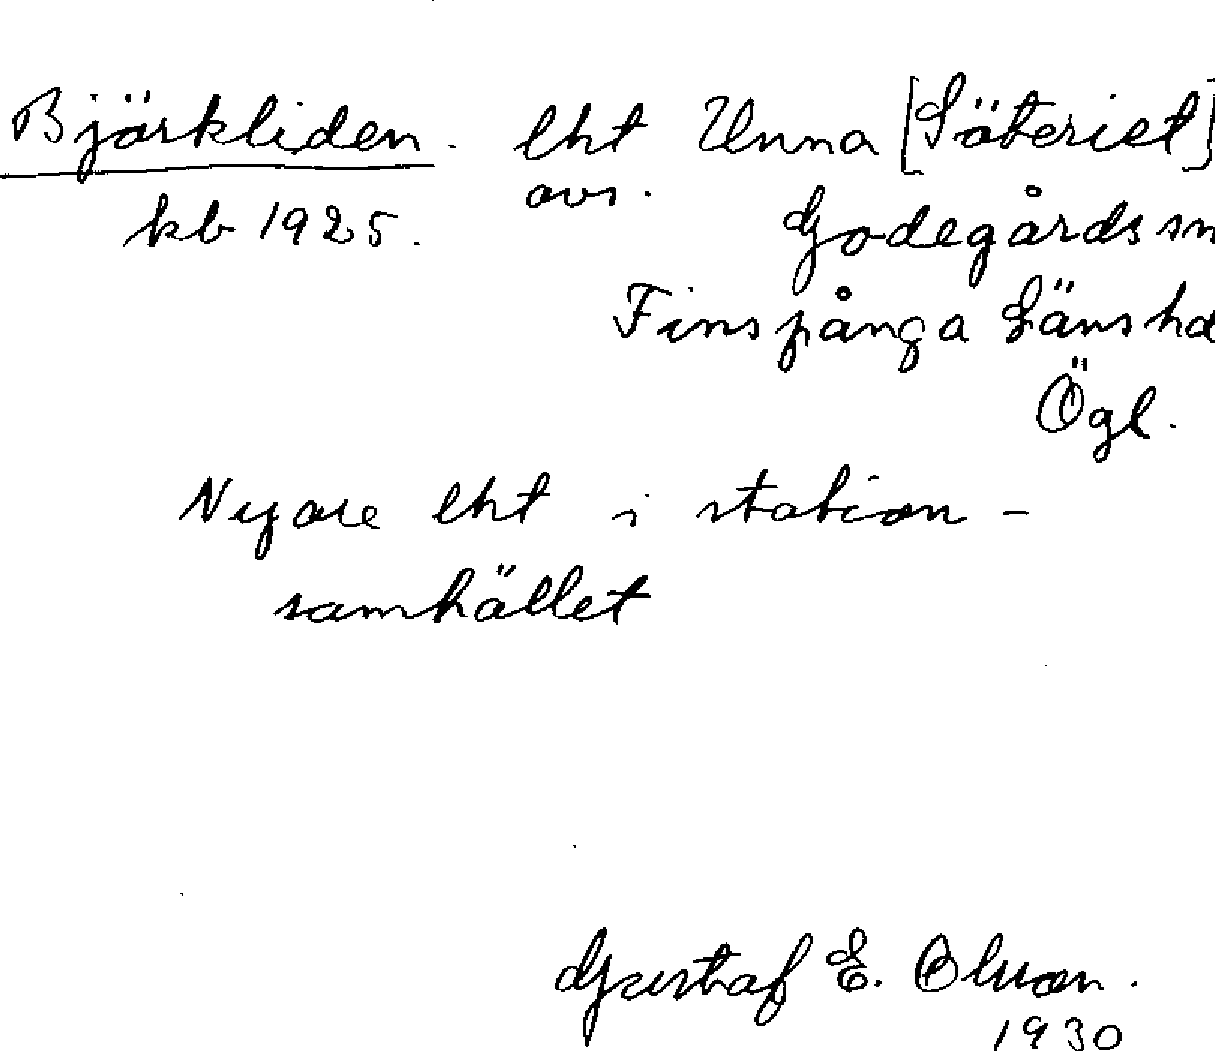 Bjärkliden. lht Unna [Säteriet]
avs.
kb 1925. Godegårds sn
Finspånga Länshd
Ögl.
Nyare lht i station-
samhället
Gustaf E. Olsson.
1930